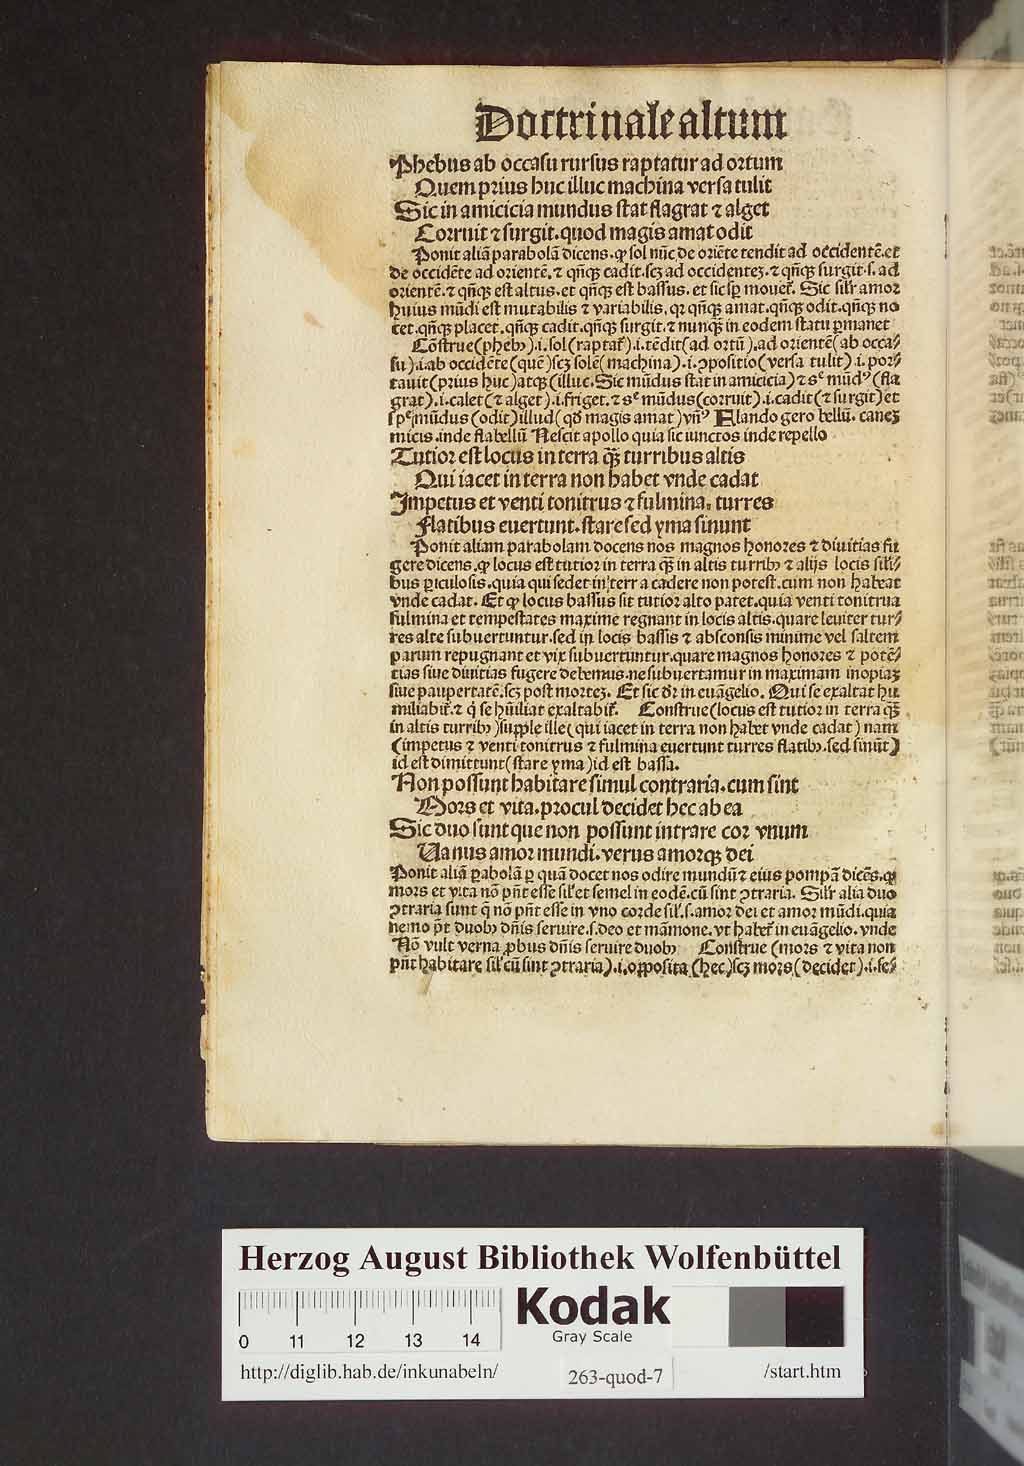 Doctrinale altum
Phebus ab occasu rursus raptatur ad ortum
Quem prius huc illuc machina versa tulit
Sic in amicicia mundus stat flagrat ⁊ alget
Corruit ⁊ surgit. quod magis amat odit
Ponit aliā parabolā dicens. ꝙ sol nūc de oriēte tendit ad occidentē. et
de occidēte ad orientē. ⁊ qñqꝫ cadit. scꝫ ad occidenteꝫ. ⁊ qñqꝫ surgit. s. ad
orientē. ⁊ qñqꝫ est altus. et qñqꝫ est bassus. et sic sꝑ mouet᷑. Sic silr̄ amor
huius mūdi est mutabilis ⁊ variabilis, qꝛ qñqꝫ amat. qñqꝫ odit. qñqꝫ no
cet. qñqꝫ placet. qñqꝫ cadit. qñqꝫ surgit. ⁊ nunqꝫ̄ in eodem statu ꝑmanet
Cōstrue (phebꝰ) .i. sol (raptat᷑) .i. tēdit (ad ortū) .ad orientē (ab occa⸗
su) .i. ab occidēte (quē) scꝫ solē (machina) .i. ↄpositio (versa tulit) .i. por⸗
tauit (prius huc) atqꝫ (illuc. Sic mūdus stat in amicicia) ⁊ sͤ mūdꝰ (fla
grat) .i. calet (⁊ alget) .i. friget. ⁊ sͤ mūdus (corruit) .i. cadit (⁊ surgit) et
mūdus (odit) illud (qđ magis amat) vñ Flando gero bellū. caneꝫ
micis. inde flabellū Nescit apollo quia sic iunctos inde repello
Tutior est locus in terra qꝫ̄ turribus altis
Qui iacet in terra non habet vnde cadat
Impetus et venti tonitrus ⁊ fulmina, turres
Flatibus euertunt. stare sed yma sinunt
Ponit aliam parabolam docens nos magnos honores ⁊ diuitias fu
gere dicens. ꝙ locus est tutior in terra qꝫ̄ in altis turribꝰ ⁊ alijs locis sili⸗
bus ꝑiculosis. quia qui sedet in terra cadere non potest. cum non habeat
vnde cadat. Et ꝙ locus bassus sit tutior alto patet. quia venti tonitrua
fulmina et tempestates maxime regnant in locis altis. quare leuiter tur⸗
res alte subuertuntur. sed in locis bassis ⁊ absconsis minime vel saltem
parum repugnant et vix subuertuntur. quare magnos honores ⁊ potē⸗
tias siue diuitias fugere debemus. ne subuertamur in maximam inopiaꝫ
siue paupertatē. scꝫ post morteꝫ. Et sic dr̄ in euāgelio. Qui se exaltat hu
miliabit᷑. ⁊ q̇ se hūiliat exaltabit᷑. Construe (locus est tutior in terra qꝫ̄
in altis turribꝰ) supple ille (qui iacet in terra non habet vnde cadat) nam
(impetus ⁊ venti tonitrus ⁊ fulmina euertunt turres flatibꝰ. sed sinūt)
id est dimittunt (stare yma) id est bassa.
Non possunt habitare simul contraria. cum sint
Mors et vita. procul decidet hec ab ea
Sic duo sunt que non possunt intrare cor vnum
Uanus amor mundi. verus amorqꝫ dei
Ponit aliā ꝑabolā ꝑ quā docet nos odire mundū ⁊ eius pompā dicēs. ꝙ
mors et vita nō pñt esse sil̄ et semel in eodē. cū sint ↄtraria. Silr̄ alia duo
ↄtraria sunt q̄ nō pñt esse in vno corde sil̄. s. amor dei et amor mūdi. quia
nemo pōt duobꝰ dñis seruire. s. deo et māmone. vt habet᷑ in euāgelio. vnde
Nō vult verna ꝓbus dñis seruire duobꝰ Construe (mors ⁊ vita non
pñt habitare sil̄ cū sint ↄtraria) .i. opposita (hec) scꝫ mors (decidet) .i. se⸗
Herzog August Bibliothek Wolfenbüttel
0 11 12 13 14
Kodak
Gray Scale
http://diglib.hab.de/inkunabeln/ 263-quod-7 /start.htm